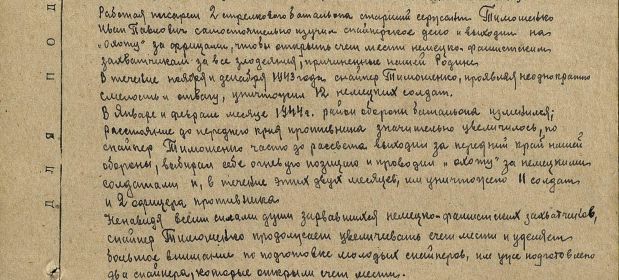 Работая писарем 2 стрелкового батальона старший сержант Тимошенко
Иван Павлович самостоятельно изучил снайперское дело и выходил на
„охоту" за фрицами, чтобы открыть счет мести немецко-фашистским
захватчикам за все злодеяния, причиненные нашей Родине.
В течение ноября и декабря 1943 года снайпер Тимошенко, проявляя неоднократно
смелость и отвагу, уничтожил 12 немецких солдат.
В Январе и феврале месяце 1944 г. район обороны батальона изменился;
Расстояние до переднего края противника значительно увеличилось, но
снайпер Тимошенко часто до рассвета выходил за передний край нашей
обороны, выбирал себе огневую позицию и проводил „охоту" за немецкими
солдатами и, в течение этих двух месяцев, им уничтожено 11 солдат
и 2 офицера противника.
Ненавидя всеми силами души зарвавшихся немецко-фашистских захватчиков,
снайпер Тимошенко продолжает увеличивать счет мести и уделяет
большое внимание по подготовке молодых снайперов, им уже подготовлено
два снайпера, которые открыли счет мести.
Д Л Я П О Д